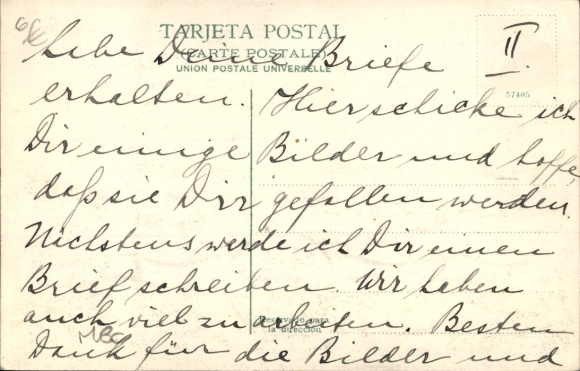 TARJETA POSTAL
(CARTE POSTALE)
UNION POSTALE UNIVERSELLE
II.
57405
habe Deine Briefe
erhalten. Hier schicke ich
Dir einige Bilder und hoffe,
daß sie Dir gefallen werden.
Nächstens werde ich Dir einen
Brief schreiben. Wir haben
auch viel zu arbeiten. Besten
Dank für die Bilder und
Reservado para
la dirección